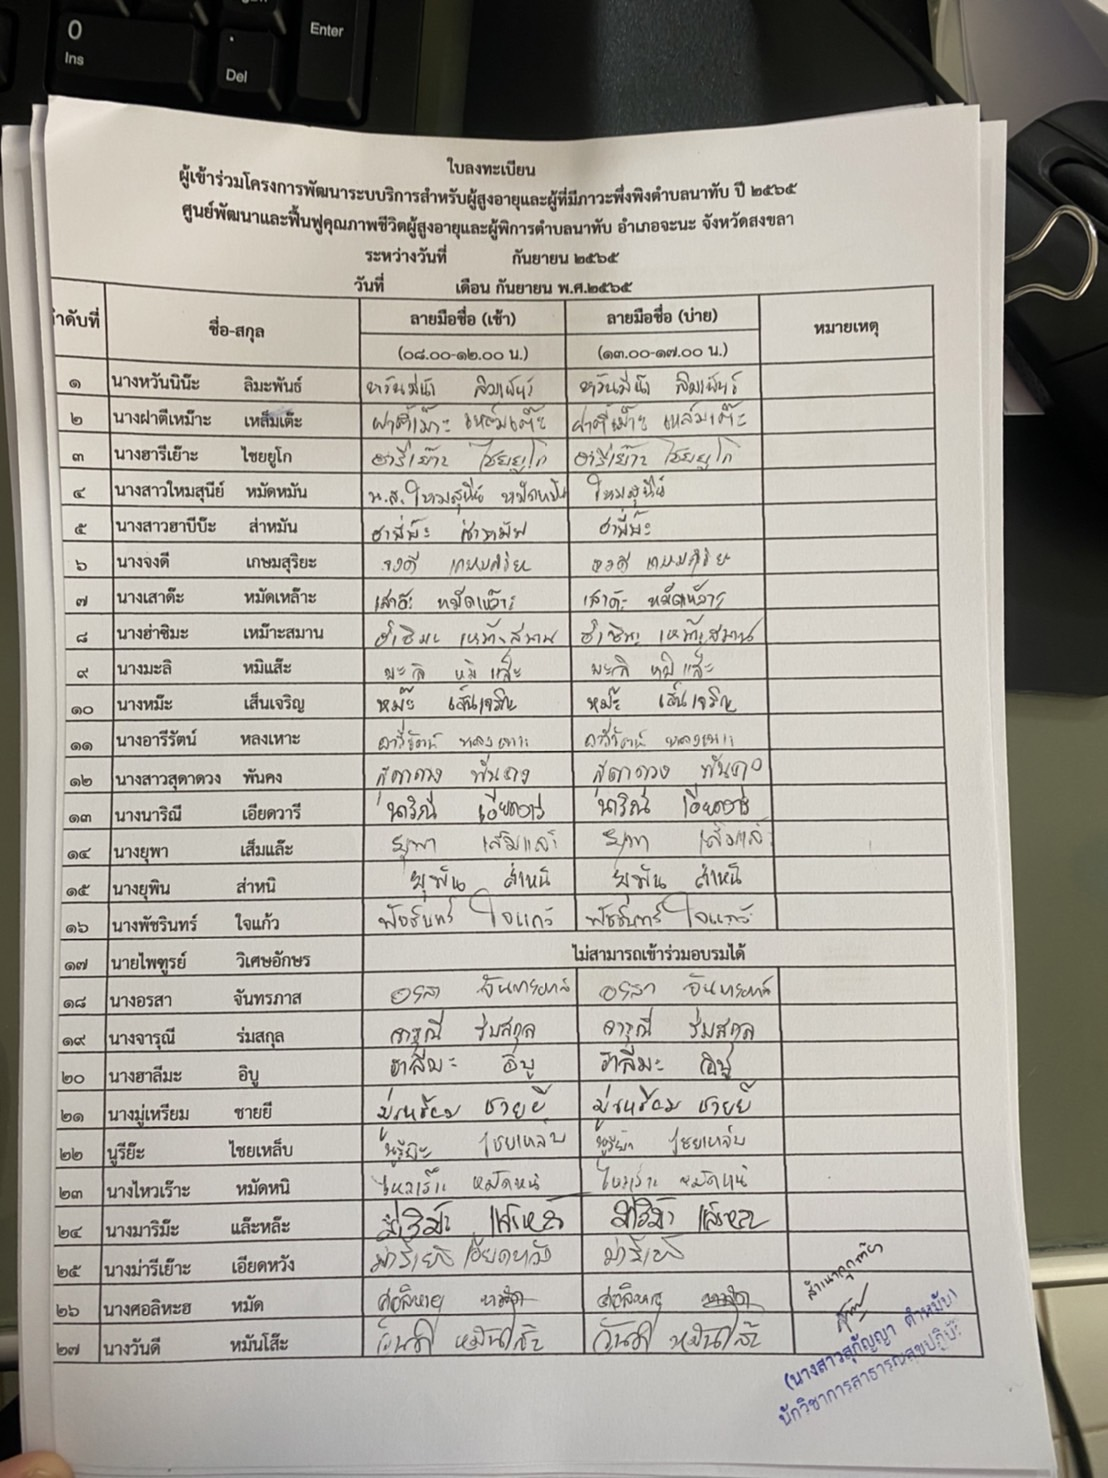 0
Ins
.
Del
Enter
ใบลงทะเบียน
ผู้เข้าร่วมโครงการพัฒนาระบบบริการสำหรับผู้สูงอายุและผู้ที่มีภาวะพึ่งพิงตำบลนาทับ ปี ๒๕๖๕
ศูนย์พัฒนาและฟื้นฟูคุณภาพชีวิตผู้สูงอายุและผู้พิการตำบลนาทับ อำเภอจะนะ จังหวัดสงขลา
ระหว่างวันที่ กันยายน ๒๕๖๕
วันที่ เดือน กันยายน พ.ศ.๒๕๖๕
ลำดับที่ ชื่อ-สกุล ลายมือชื่อ (เช้า) ลายมือชื่อ (บ่าย) หมายเหตุ
(๐๘.๐๐-๑๒.๐๐ น.) (๑๓.๐๐-๑๗.๐๐ น.)
๑ นางหวันนินิ๊ะ ลิมะพันธ์
๒ นางฝาตีเหม๊าะ เหล็มเต๊ะ ฝาตีเม๊าะ เหล็มเต๊ะ ฝาตีเม๊าะ เหล็มเต๊ะ
๓ นางฮารีเย๊าะ ไชยยูโก ฮารีเย๊าะ ไชยยูโก ฮารีเย๊าะ ไชยยูโก
๔ นางสาวใหมสุนีย์ หมัดหมัน น.ส.ใหมสุนีย์ หมัดหมัน ใหมสุนีย์
๕ นางสาวฮาบีบ๊ะ ส่าหมัน
๖ นางจงดี เกษมสุริยะ จงดี เกษมสุริยะ จงดี เกษมสุริยะ
๗ นางเสาด๊ะ หมัดเหล๊าะ เสาด๊ะ หมัดเหล๊าะ เสาด๊ะ หมัดเหล๊าะ
๘ นางฮ่าซิมะ เหม๊าะสมาน ฮ่าซิมะ เหม๊าะสมาน ฮ่าซิมะ เหม๊าะสมาน
๙ นางมะลิ หมิแส๊ะ มะลิ หมิแส๊ะ มะลิ หมิแส๊ะ
๑๐ นางหม๊ะ เส็นเจริญ หม๊ะ เส็นเจริญ หม๊ะ เส็นเจริญ
๑๑ นางอารีรัตน์ หลงเหาะ อารีรัตน์ หลงเหาะ อารีรัตน์ หลงเหาะ
๑๒ นางสาวสุดาดวง พันคง สุดาดวง พันคง สุดาดวง พันคง
๑๓ นางนาริณี เอียดวารี นาริณี เอียดวารี นาริณี เอียดวารี
๑๔ นางยุพา เส็มแล๊ะ ยุพา เส็มแล๊ะ ยุพา เส็มแล๊ะ
๑๕ นางยุพิน ส่าหนิ ยุพิน ส่าหนิ ยุพิน ส่าหนิ
๑๖ นางพัชรินทร์ ใจแก้ว พัชรินทร์ ใจแก้ว พัชรินทร์ ใจแก้ว
๑๗ นายไพฑูรย์ วิเศษอักษร ไม่สามารถเข้าร่วมอบรมได้
๑๘ นางอรสา จันทรภาส อรสา จันทรภาส อรสา จันทรภาส
๑๙ นางจารุณี ร่มสกุล จารุณี ร่มสกุล จารุณี ร่มสกุล
๒๐ นางฮาลีมะ อิบู ฮาลีมะ อิบู ฮาลีมะ อิบู
๒๑ นางมู่เหรียม ชายยี มู่เหรียม ชายยี มู่เหรียม ชายยี
๒๒ นูรีย๊ะ ไชยเหล็บ นูรีย๊ะ ไชยเหล็บ ไชยเหล็บ
๒๓ นางไหวเร๊าะ หมัดหนิ ไหวเร๊าะ หมัดหนิ ไหวเร๊าะ หมัดหนิ
๒๔ นางมาริม๊ะ แล๊ะหล๊ะ
๒๕ นางม่ารีเย๊าะ เอียดหวัง ม่ารีเย๊าะ เอียดหวัง ม่ารีเย๊าะ
๒๖ นางศอลิหะฮ หมัด
๒๗ นางวันดี หมันโส๊ะ วันดี หมันโส๊ะ วันดี หมันโส๊ะ
สำเนาถูกต้อง
(นางสาวสุกัญญา ดำหมับ)
นักวิชาการสาธารณสุขปฏิบัติ